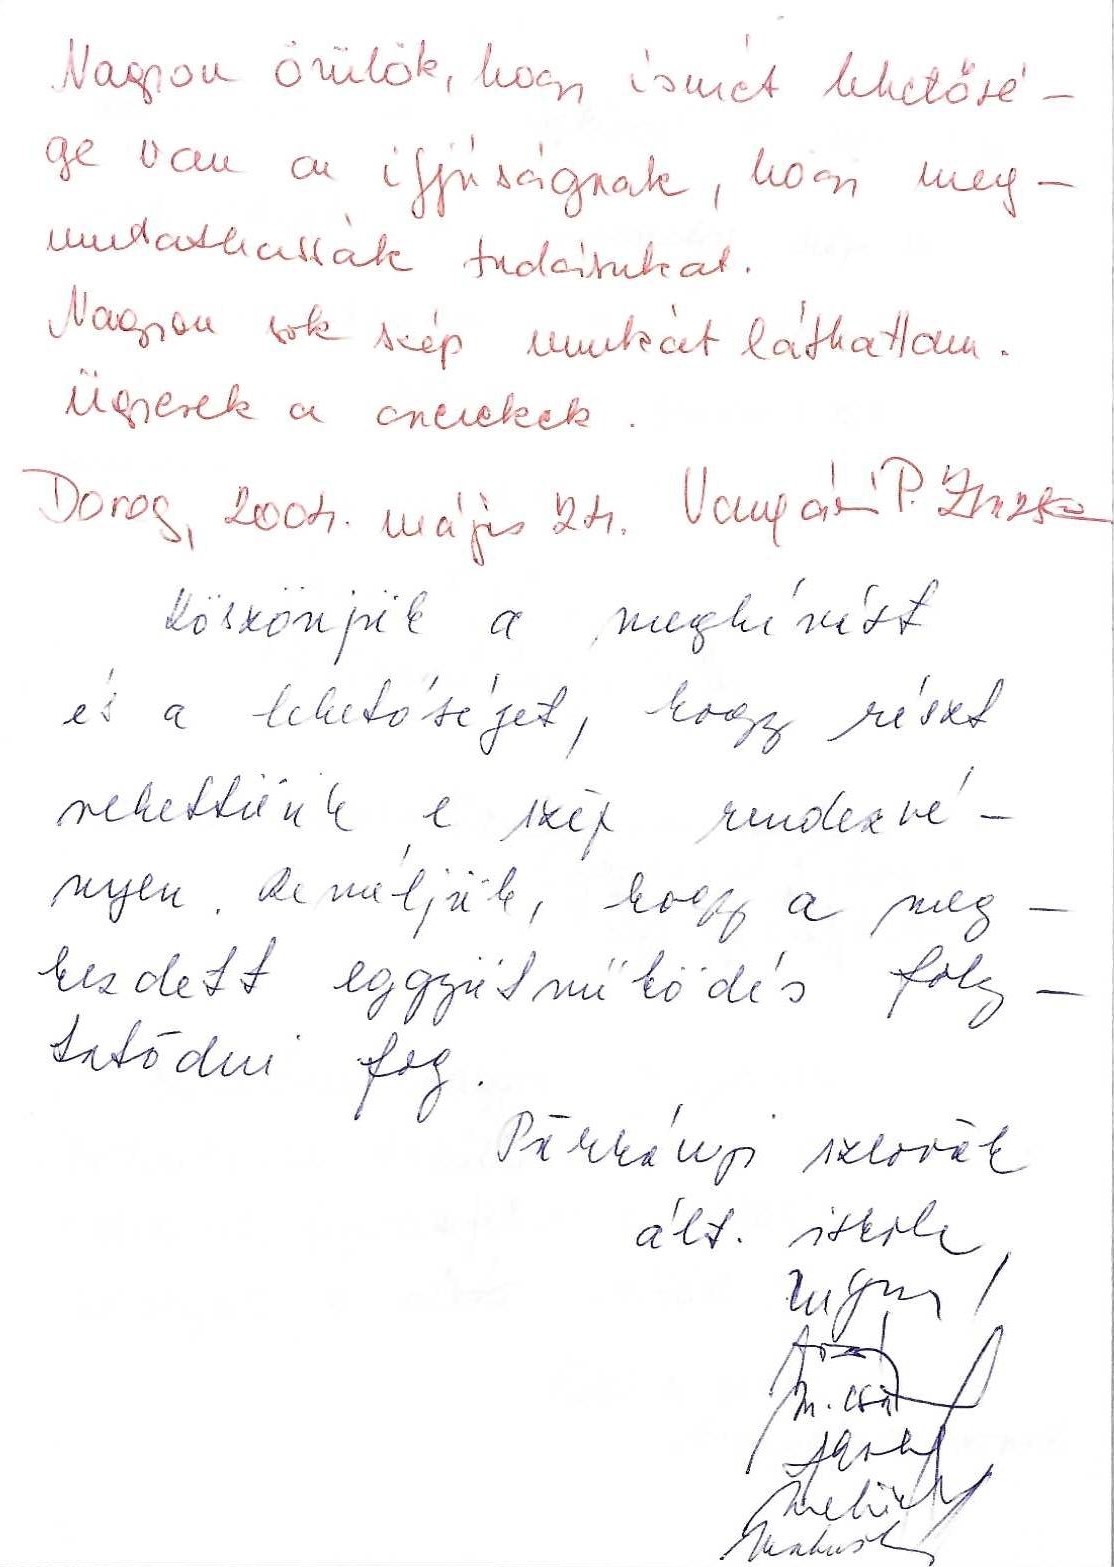 Nagyon örülök, hogy ismét lehetősé-
ge van az ifjúságnak, hogy meg-
mutathassák tudásukat.
Nagyon sok szép munkát láthattam.
Ügyesek a gyerekek.
Dorog, 2004. május 24. P. Zsuzsa
Köszönjük a meghívást
és a lehetőséget, hogy részt
vehettünk e szép rendezvé-
nyen. Reméljük, hogy a meg-
kezdett eggyütműködés foly-
tatódni fog.
Párkányi szlovák
ált. iskola